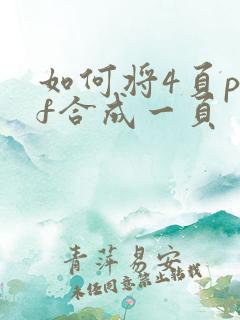 如何将4页p
f合成一页
青萍易安
未经同意禁止转载